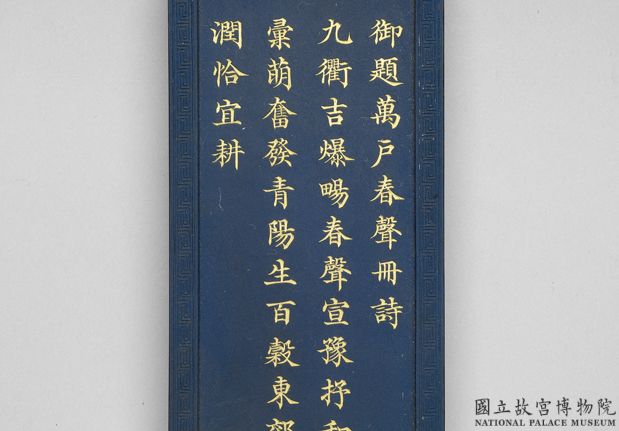 御題萬戶春聲冊詩
九衢吉爆暢春聲宣豫抒和
彙萌奮發青陽生百穀東郊
潤恰宜耕
國立故宮博物院
NATIONAL PALACE MUSEUM